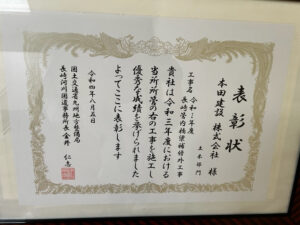 表彰状
土木部門
本田建設 株式会社 様
工事名 令和二年度
長崎管内橋梁補修外工事
貴社は令和三年度における
当所所管の右の工事を施工し
優秀な成績を挙げられました
よってここに表彰します
令和四年八月五日
国土交通省九州地方整備局
長崎河川国道事務所長